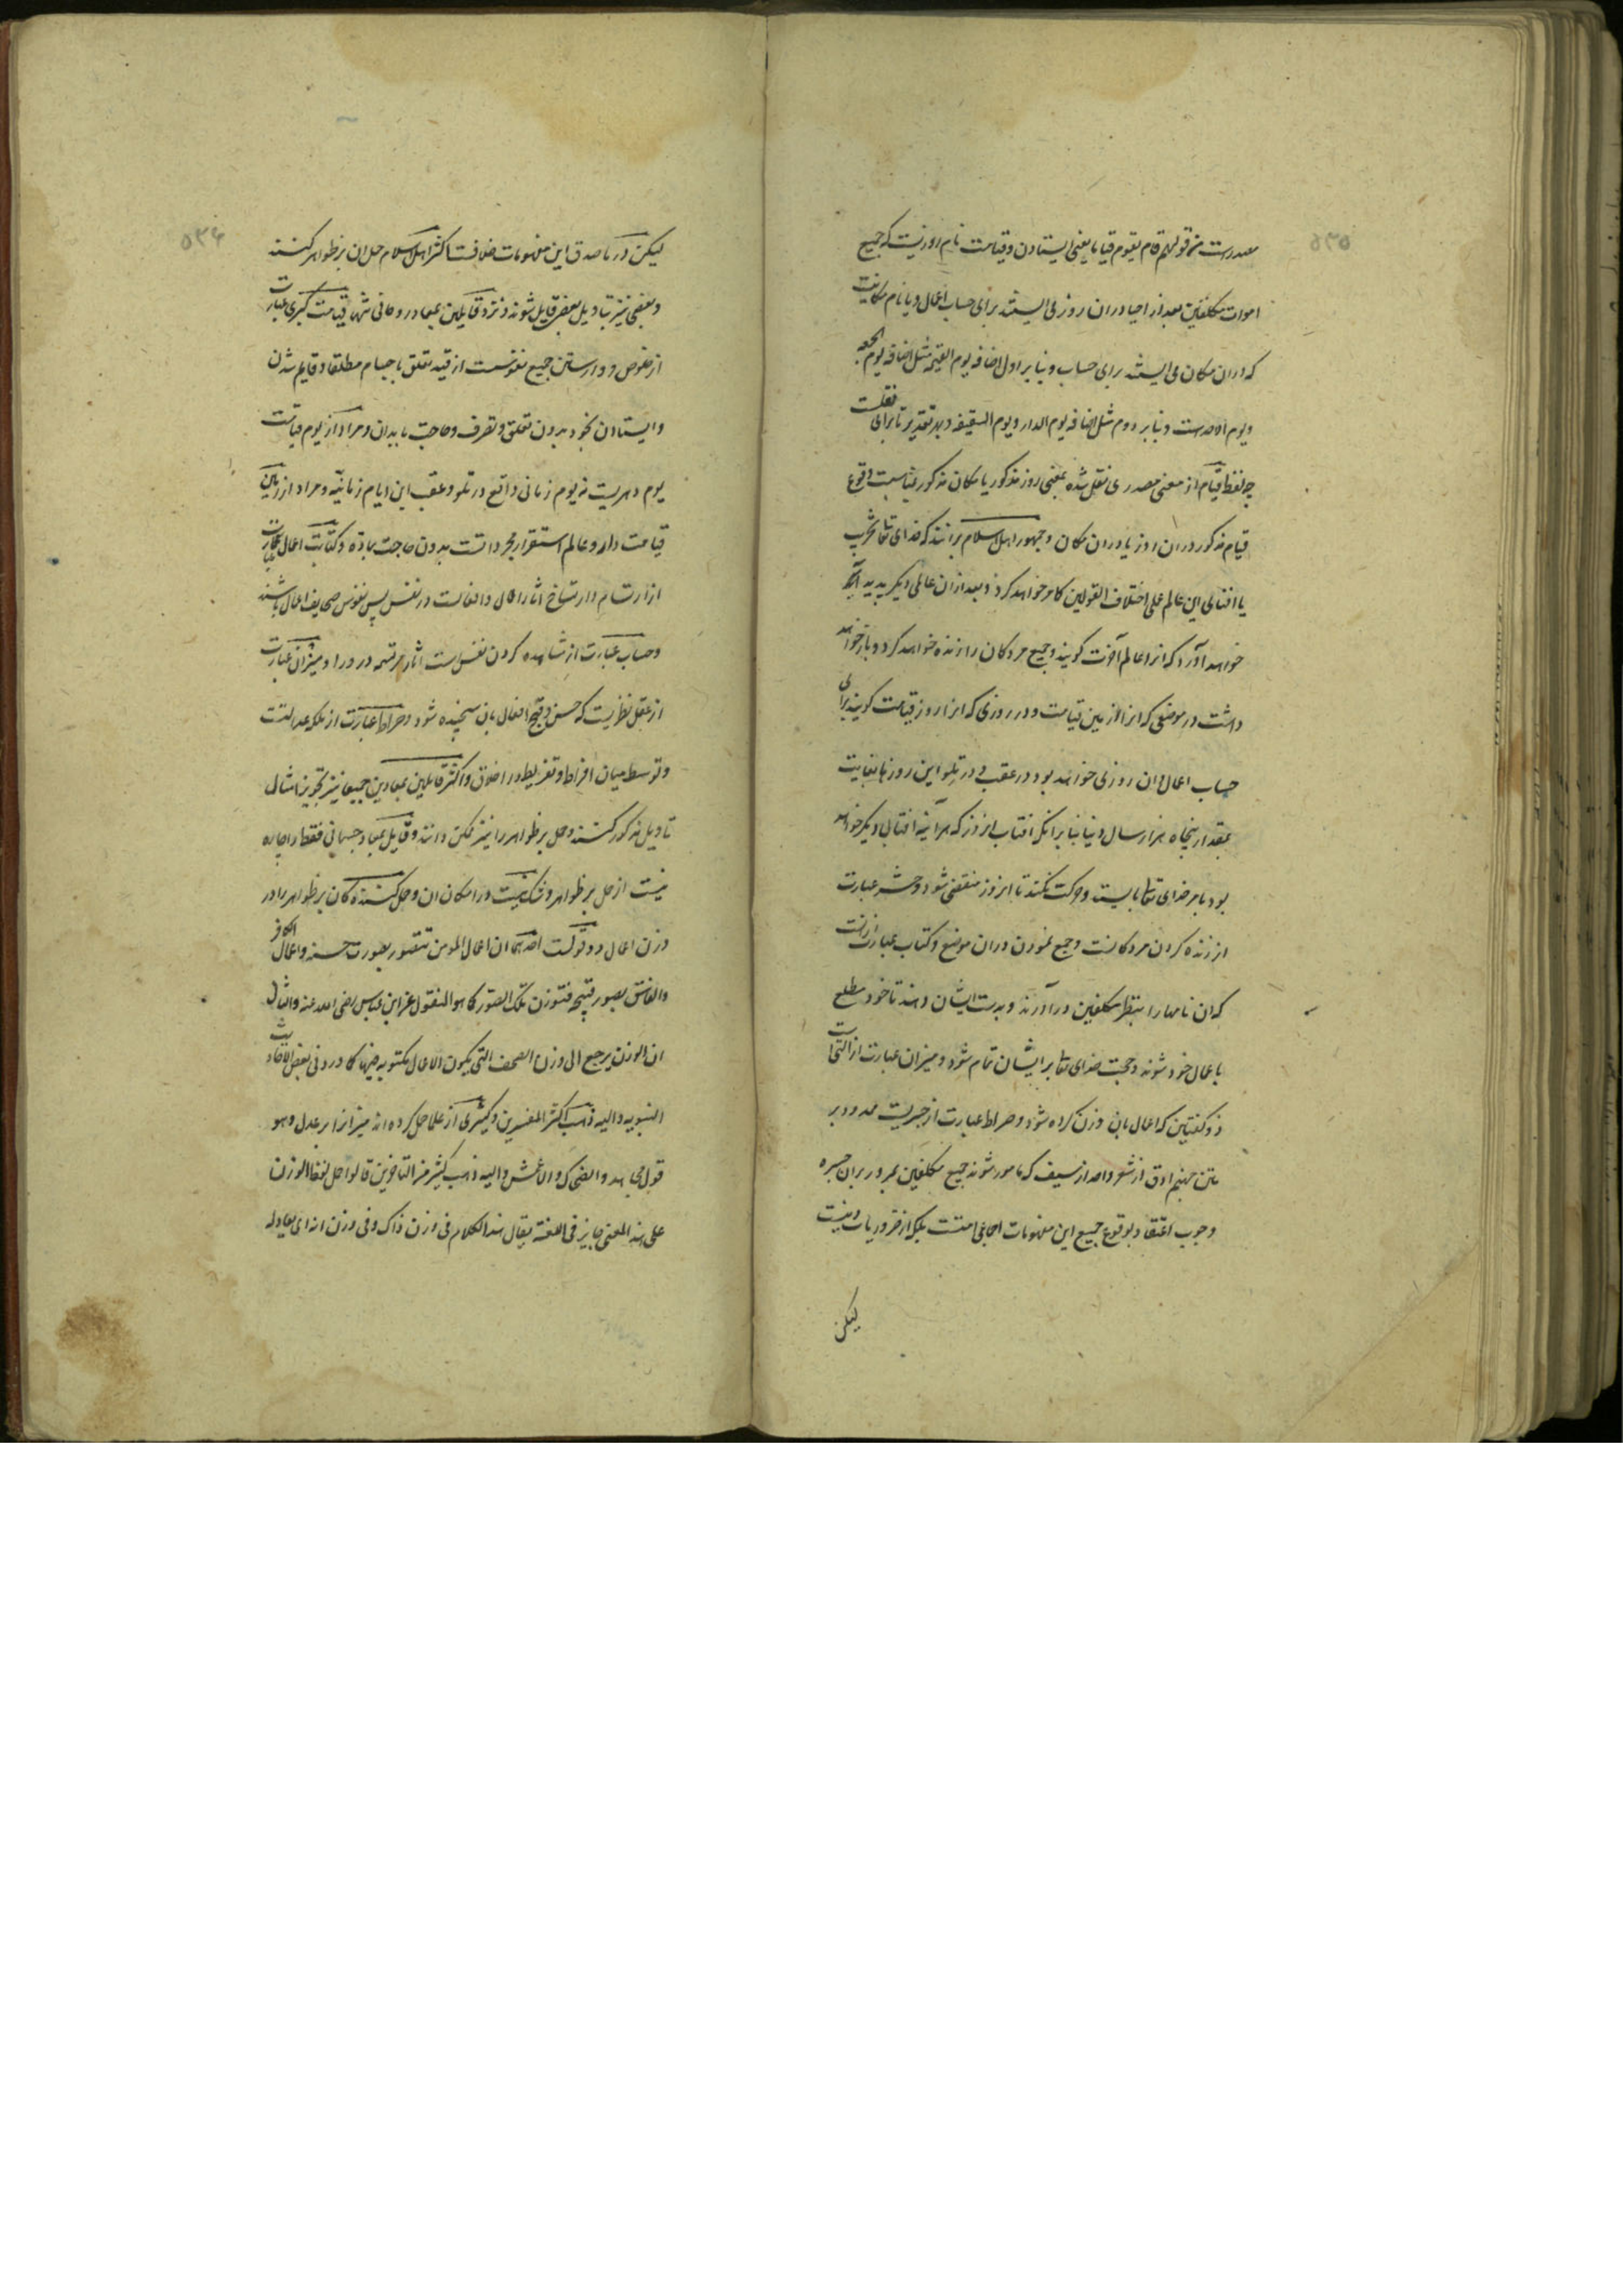 ۵۳۵
مصدرست من قولهم قام یقوم قیاما یعنی ایستادن و قیامت نام روزیست که جمیع
اموات مکلفین بعد از احیا دران روز می ایستند برای حساب اعمال و یا نام مکانیست
که دران مکان می ایستند برای حساب و بنا بر اول اضافه یوم القیمه مثل اضافه یوم الجمعه
و یوم الاحدست و بنا بر دوم مثل اضافه یوم الدار و یوم السقیفه و بهر تقدیر تا برای نقلست
چه لفظ قیام از معنی مصدری نقل شده بمعنی روز مذکور یا مکان مذکور بمناسبت وقوع
قیام مذکور دران روز یا دران مکان و جمهور اهل اسلام برانند که خدای تعالی تخریب
یا افنای این عالم علی اختلاف القولین کامر خواهد کرد و بعد ازان عالمی دیگر پدید
خواهد آورد که انرا عالم آخرت گویند و جمیع مردگان را زنده خواهد کرد و باز خواهد
داشت در موضعی که انرا زمین قیامت و در روزی که انرا روز قیامت گویند برای
حساب اعمال و ان روزی خواهد بود در عقب و در تلو این روزها بغایت
بمقدار پنجاه هزار سال دنیا بنا برانکه افتاب انروز که هراینه افتابی دیگر خواهد
بود بامر خدای تعالی بایستد و حرکت نکند تا انروز منقضی شود و حشر عبارت
از زنده کردن مردگانست و جمع نمودن دران موضع و کتاب عبارت ازانست
که ان نامها را بنظر مکلفین درآورند و بدست ایشان دهند تا خود مطلع
باعمال خود شوند و حجت خدای تعالی بر ایشان تمام شود و میزان عبارت از التی است
ذو کفتین که اعمال بان وزن کرده شود و صراط عبارت از جسریست ممدود بر
متن جهنم ادق از شعر و احد از سیف که مامور شوند جمیع مکلفین بمرور بران جسر و
وجوب اعتقاد بوقوع جمیع این مفهومات اجماعی امتست بلکه از ضروریات دینست
لیکن
۵۳۶
لیکن در ما صدق این مفهومات خلافست اکثر اهل اسلام حمل ان بر ظواهر کنند
و بعضی نیز بتاویل بعضی قایل شوند و نزد قایلین بمعاد روحانی تنها قیامت کبری عبارت
از خلوص و وارستن جمیع نفوسست از قید تعلق باجسام مطلقا و قایم شدن
و ایستادن بخود بدون تعلق و تصرف و حاجت بابدان و مراد از یوم قیامت
یوم دهریست نه یوم زمانی واقع در تلو و عقب این ایام زمانیه و مراد از زمین
قیامت دار و عالم استقرار مجرداتست بدون حاجت بماده و کتابت اعمال عبارت
از ارتسام و ارتساخ اثار اعمال و افعالست در نفس پس نفوس صحایف اعمال باشند
و حساب عبارت از مشاهده کردن نفس است اثار مرتسمه در و را و میزان عبارت
از عقل نظریست که حسن و قبح افعال بان سنجیده شود و صراط عبارت از ملکه عدالتست
و توسط میان افراط و تفریط در اخلاق و اکثر قایلین بمعادین جمیعا نیز تجویز امثال
تاویل مذکور کنند و حمل بر ظواهر را نیز ممکن دانند و قایل بمعاد جسمانی فقط را چاره
نیست از حمل بر ظواهر و شک نیست در امکان ان و حمل کنندگان بر ظواهر را در
وزن اعمال دو قولست احدهما ان اعمال المومن تتصور بصورت حسنه و اعمال الکافر
والفاسق بصور قبیحه فتوزن تلک الصور کما هو المنقول عن ابن عباس رضی الله عنه والثانی
ان الوزن یرجع الی وزن الصحف التی یکون الاعمال مکتوبه فیها کما ورد فی بعض الاحادیث
النبویه و الیه ذهب اکثر المفسرین و کثیری از علما حمل کرده اند میزانرا بر عدل و هو
قول مجاهد والضحاک والاعمش والیه ذهب کثیر من المتاخرین قالوا حمل لفظ الوزن
علی هذا المعنی جایز فی اللغة یقال هذا الکلام فی وزن ذاک و فی وزن انه ای یعادله